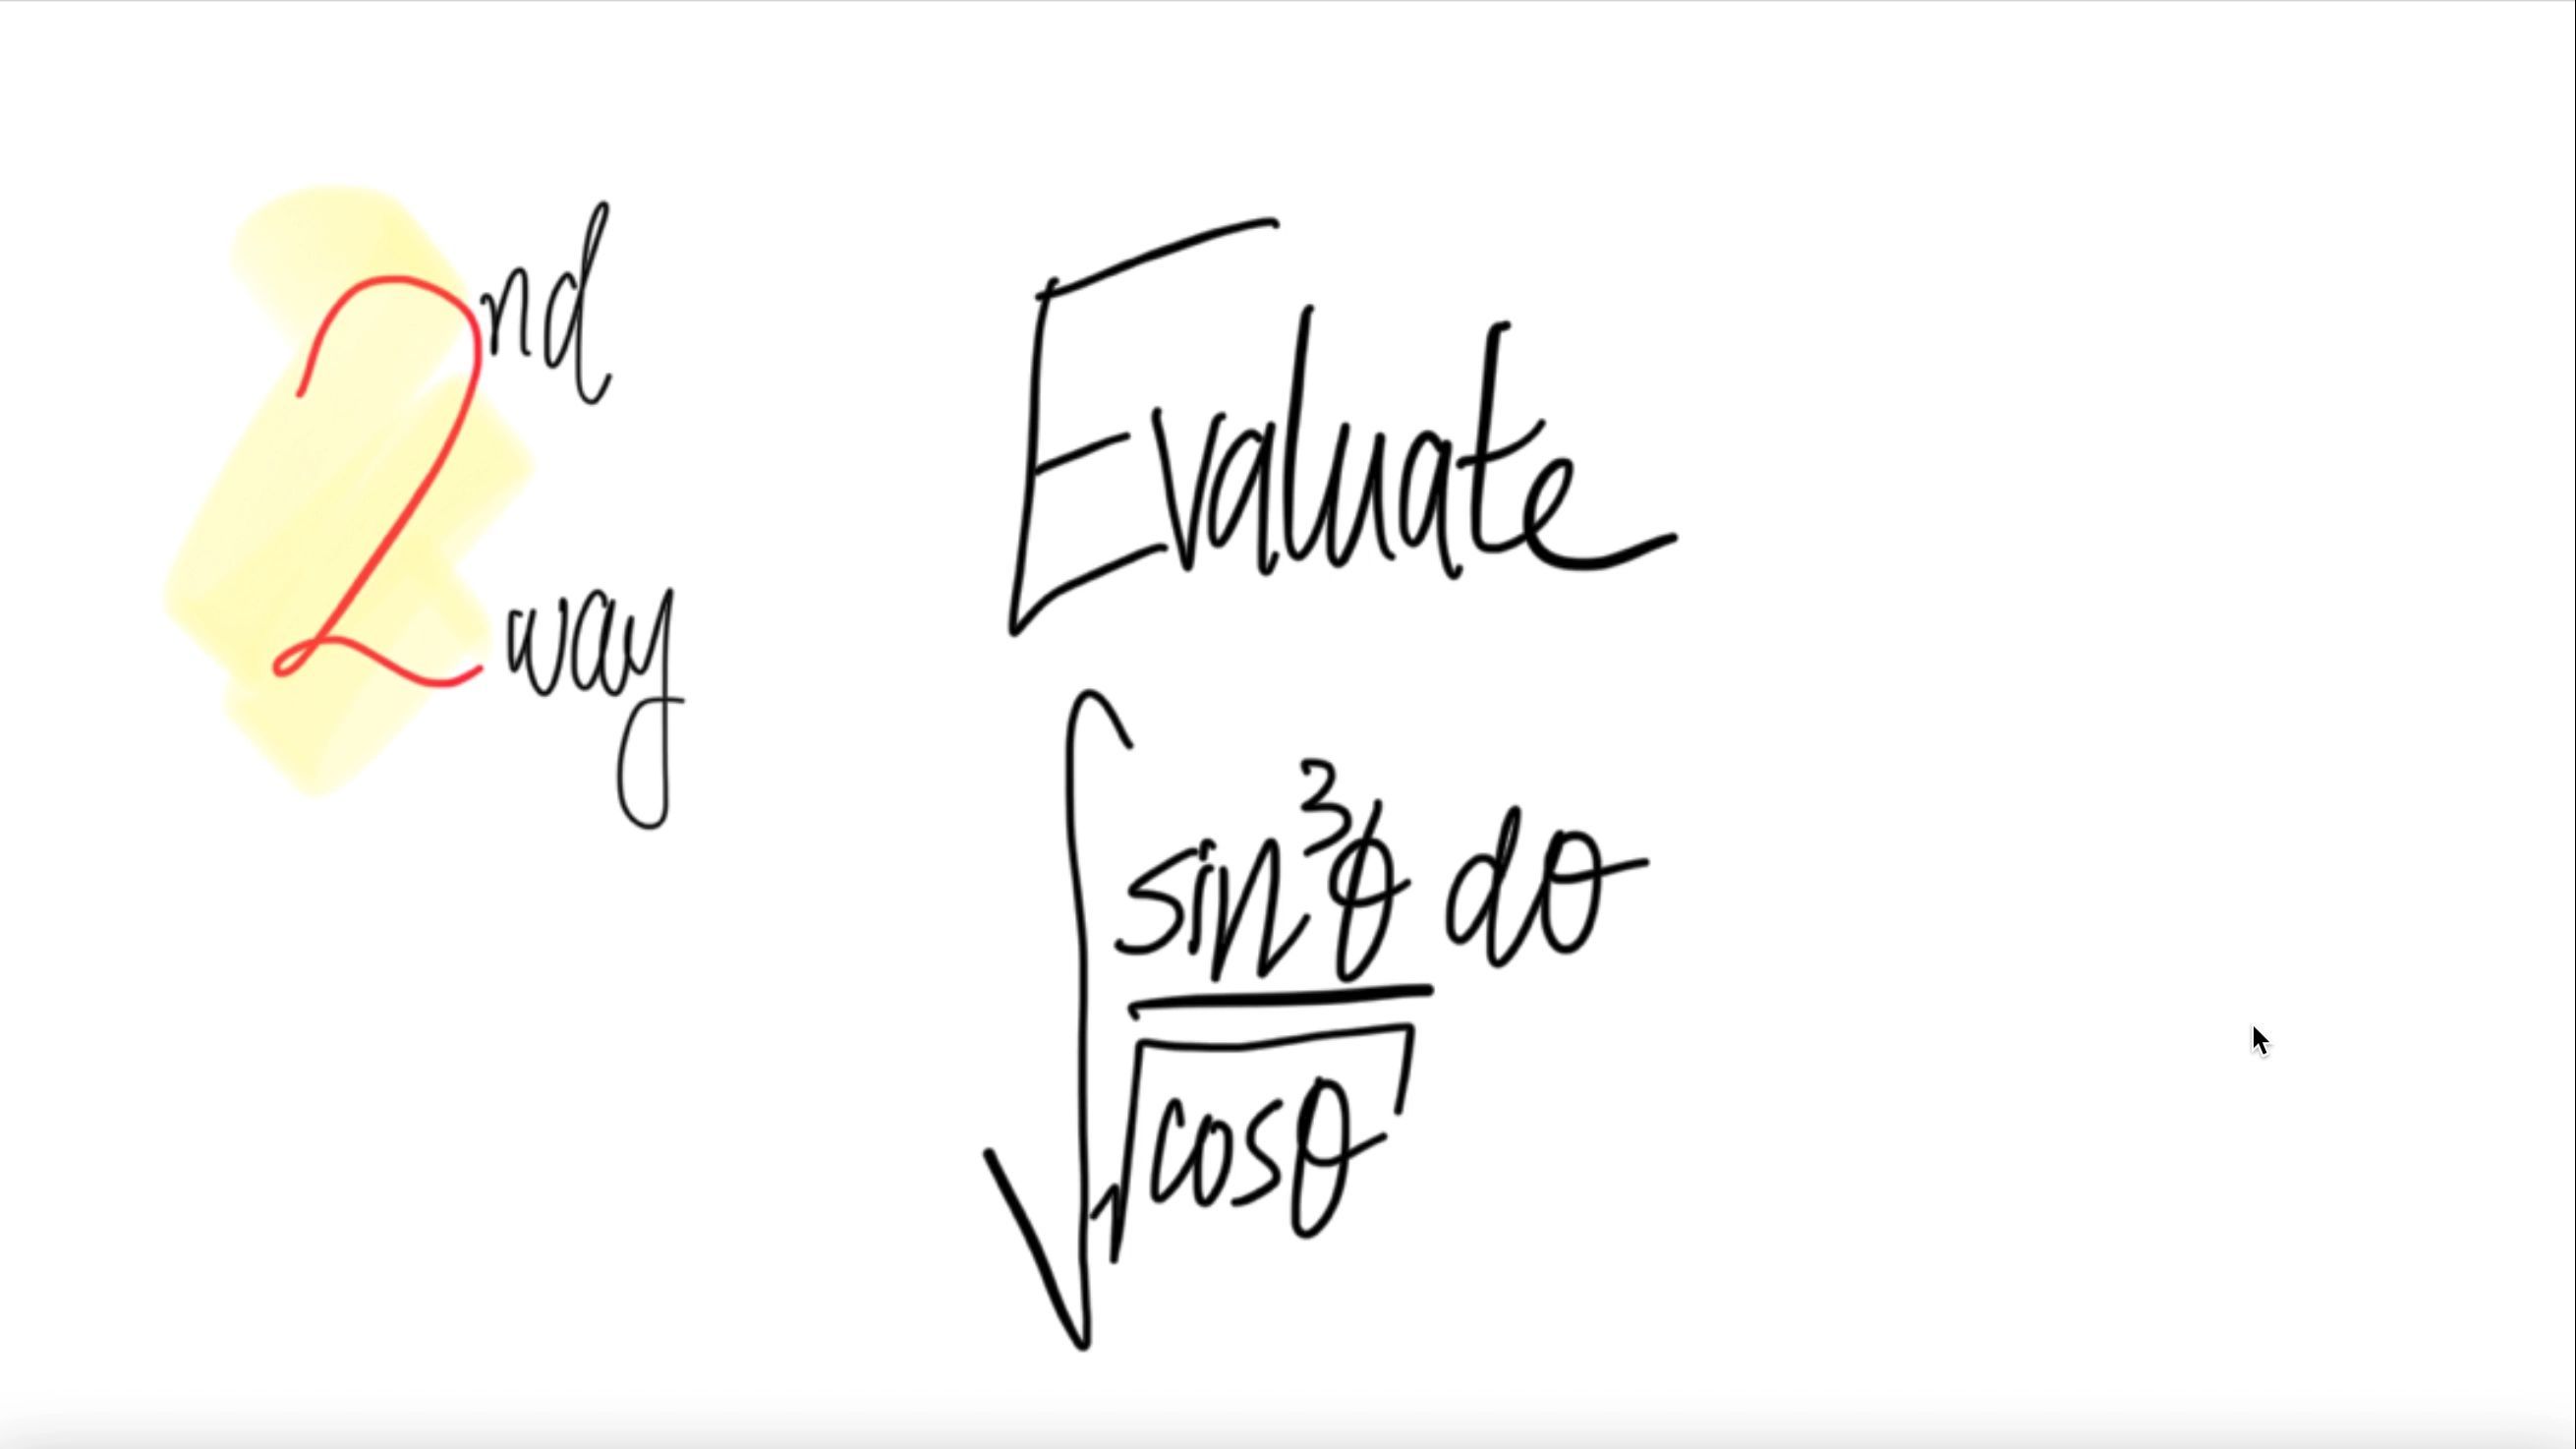 2nd
way
Evaluate
∫ sin³θ dθ
√cosθ